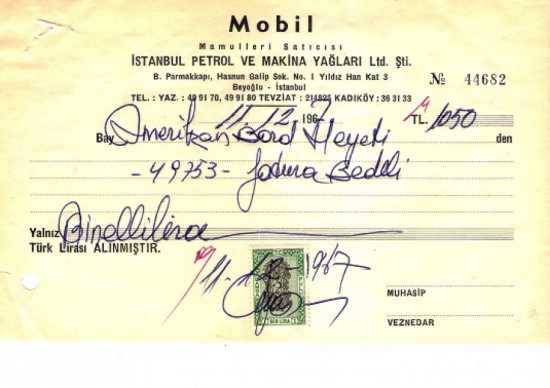 Mobil
Mamulleri Satıcısı
İSTANBUL PETROL VE MAKİNA YAĞLARI Ltd. Şti.
B. Parmakkapı, Hasnun Galip Sok. No. 1 Yıldız Han Kat 3
Beyoğlu - İstanbul
№ 44682
TEL. : YAZ. : 49 91 70, 49 91 80 TEVZİAT : 214825 KADIKÖY : 36 31 33
11/12/1967 TL. 1050
Bay Amerikan Bord Heyeti den
- 49753 - fatura Bedeli
Yalnız Binellilira
Türk Lirası ALINMIŞTIR.
11-12-1967
BİR LİRA
MUHASİP
VEZNEDAR